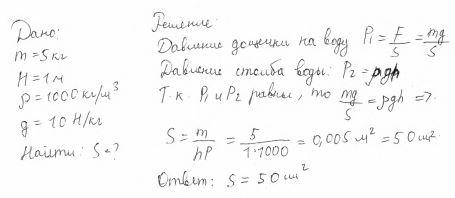 Дано:
m = 5 кг
H = 1 м
ρ = 1000 кг/м³
g = 10 Н/кг
Найти: S = ?
Решение:
Давление дощечки на воду P₁ = F/S = mg/S
Давление столба воды: P₂ = ρgh
Т.к. P₁ и P₂ равны, то mg/S = ρgh =>
S = m/hρ = 5/1·1000 = 0,005 м² = 50 см²
Ответ: S = 50 см²